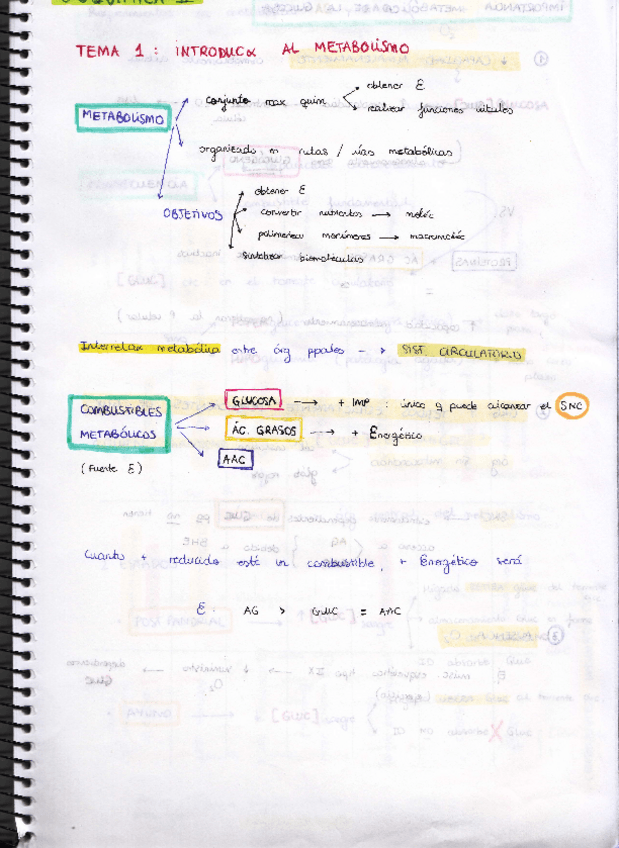 BIOQUÍMICA II
TEMA 1 : INTRODUCX AL METABOLISMO
METABOLISMO
conjunto rax quím
obtener E
realizar funciones vitales
organizado en rutas / vías metabólicas
OBJETIVOS
obtener E
convertir nutrientes → moléc
polimerizar monómeros → macromoléc
sintetizar biomoléculas
Interrelax metabólica entre órg ppales - → SIST CIRCULATORIO
COMBUSTIBLES METABÓLICOS
(Fuente E)
GLUCOSA → + IMP : único q puede alcanzar el SNC
ÁC. GRASOS → + Energético
AAC
Cuanto + reducido esté un combustible, + Energético será
E : AG > GLUC = AAC